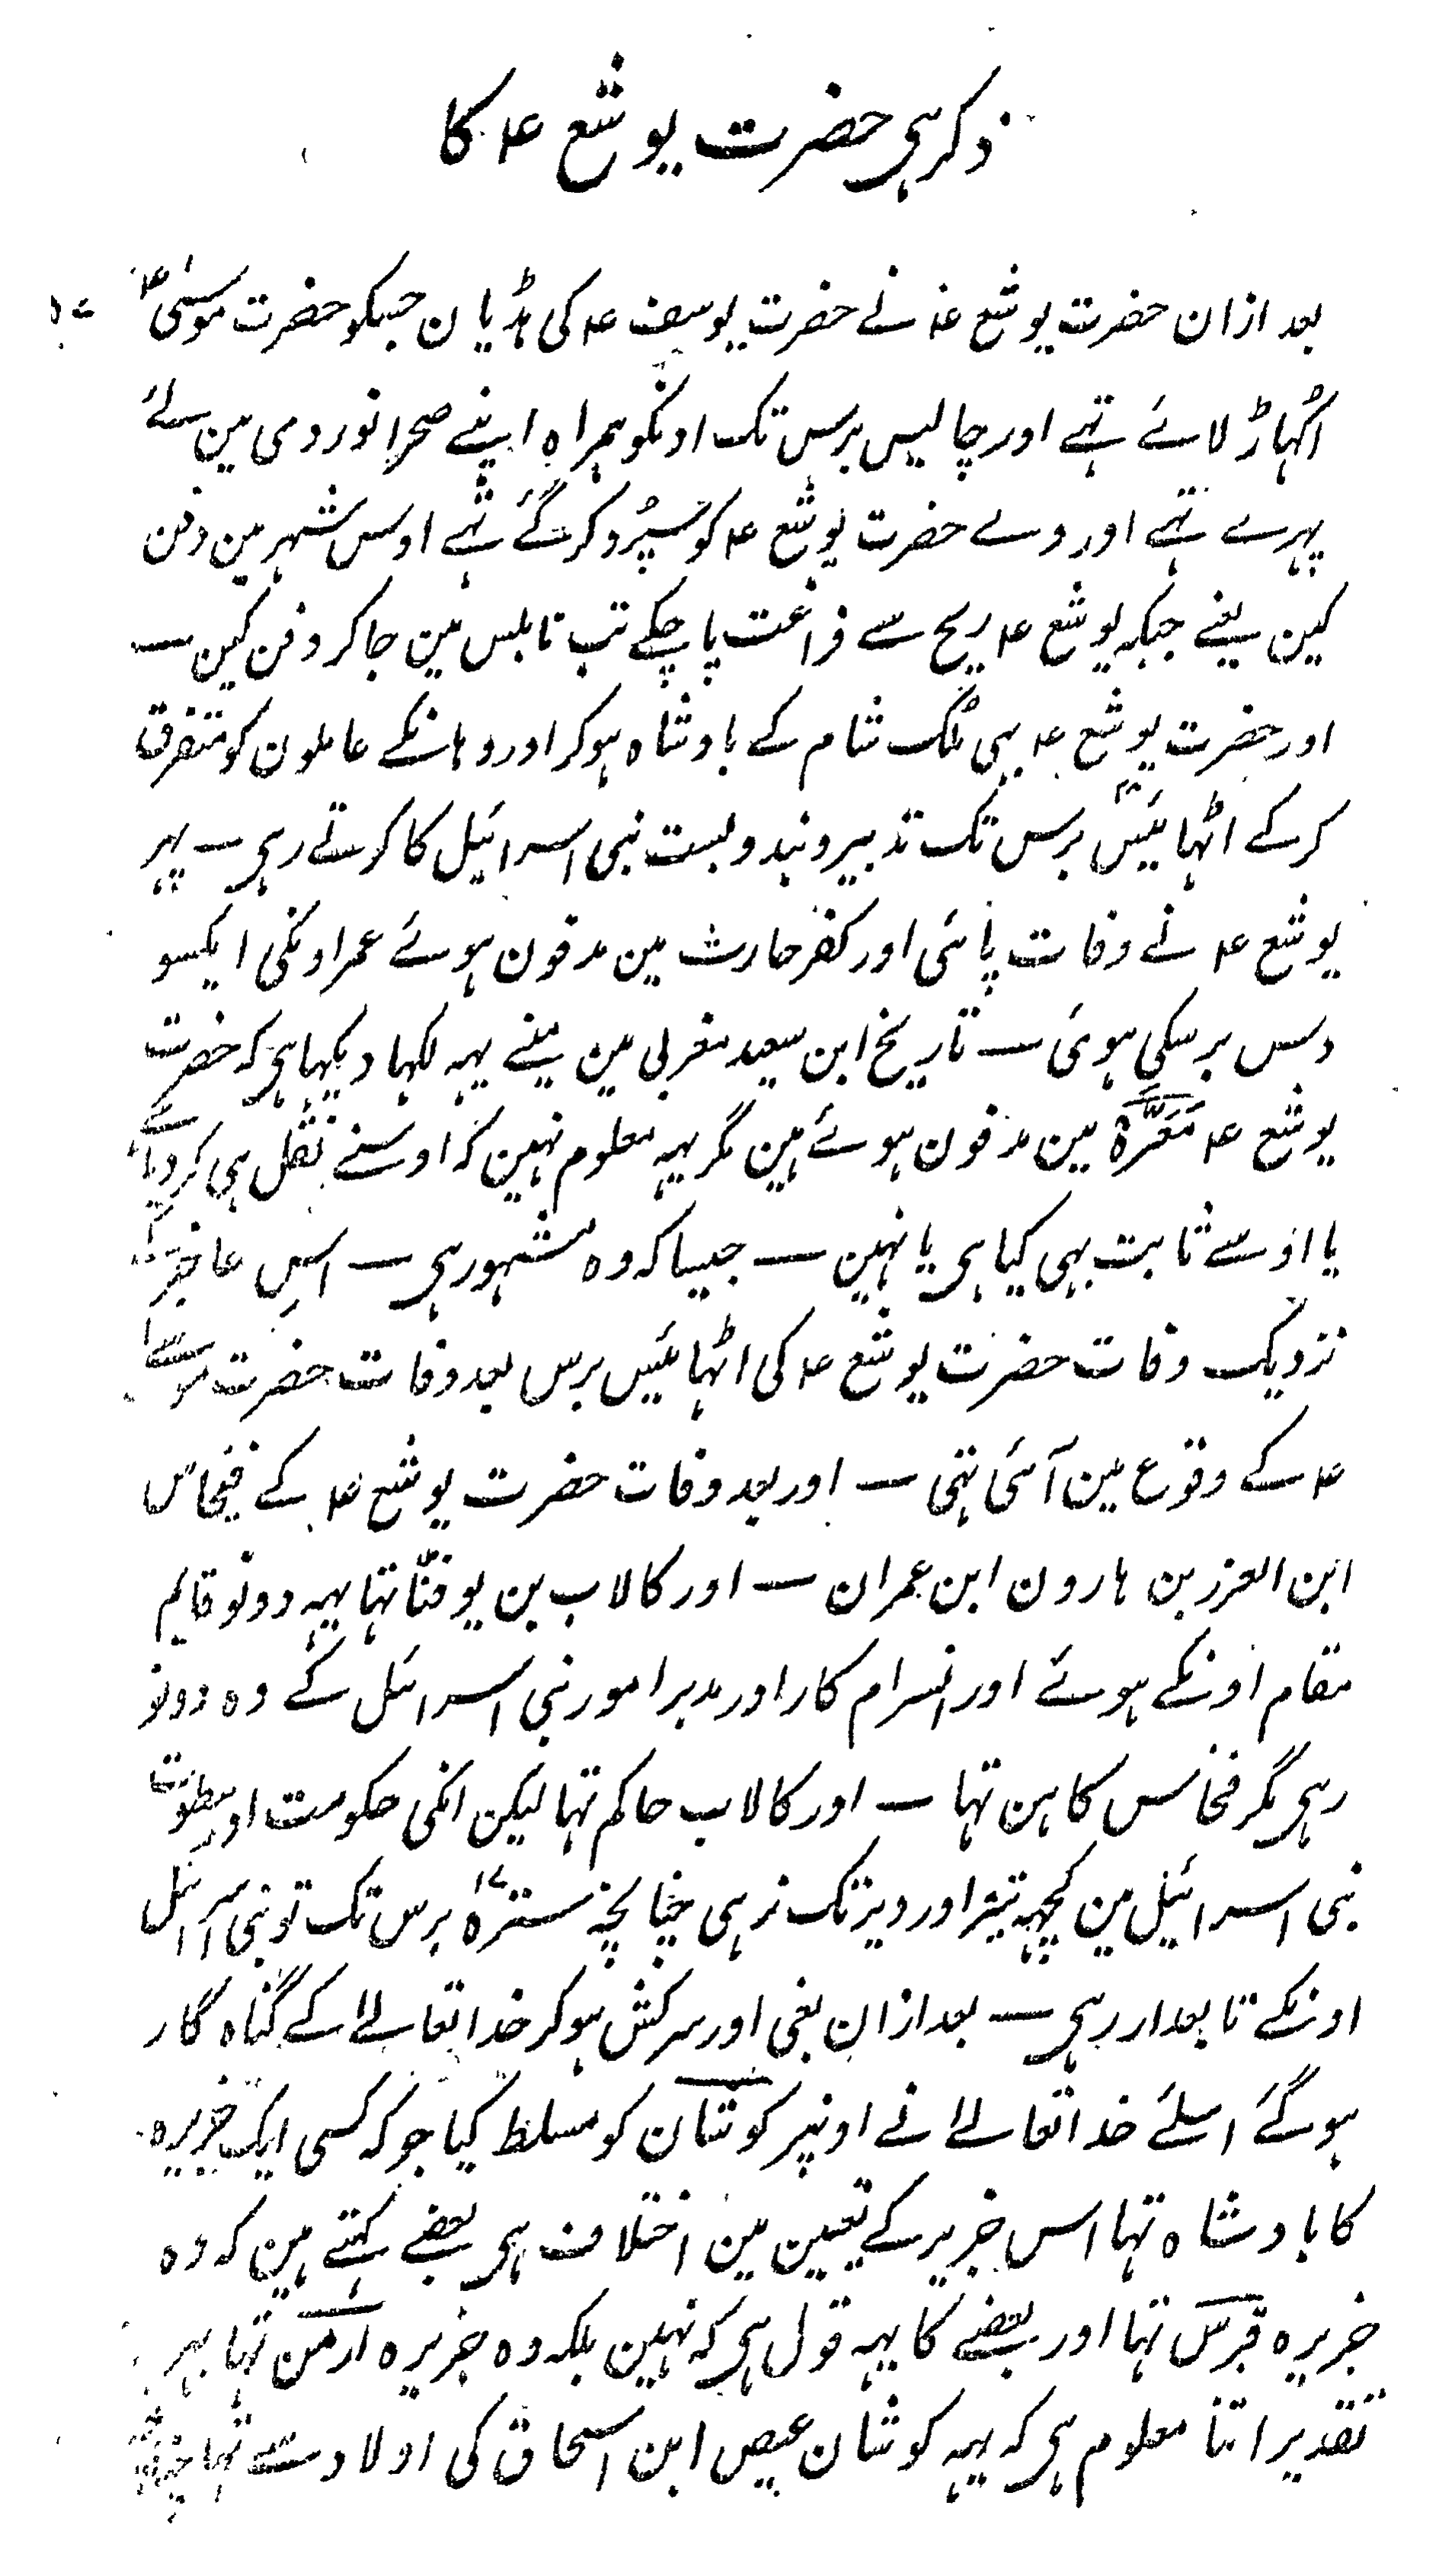 ذکر ہی حضرت یوشع ۴ کا
بعد ازان حضرت یوشع ۴ نے حضرت یوسف ۴ کی ہڈیان جسکو حضرت موسیٰ ۴
اُکہاڑ لائے تہے اور چالیس برس تک اونکو ہمراہ اپنے صحرا نوردی مین لئے
پہرے تہے اور وے حضرت یوشع ۴ کو سپُرد کر گئے تہے اوس شہر مین دفن
کین یعنے جبکہ یوشع ۴ ریح سے فراغت پا چکے تب نابلس مین جا کر دفن کین —
اور حضرت یوشع ۴ بہی مُلک شام کے بادشاہ ہوکر اور وہانکے عاملون کو متفرق
کرکے اٹہائیس برس تک تدبیر و بندوبست بنی اسرائیل کا کرتے رہی — پہر
یوشع ۴ نے وفات پائی اور کفر حارث مین مدفون ہوئے عمر اونکی ایکسو
دس برسکی ہوئی — تاریخ ابن سعید مغربی مین مینے یہہ لکہا دیکہا ہی کہ حضرت
یوشع ۴ مَعَرَّۃ مین مدفون ہوئے ہین مگر یہہ معلوم نہین کہ اوسنے نقل ہی کر دیا ہے
یا اوسے ثابت بہی کیا ہی یا نہین — جیسا کہ وہ مشہور ہی — اس عاجز کے
نزدیک وفات حضرت یوشع ۴ کی اٹہائیس برس بعد وفات حضرت موسےٰ
۴ کے وقوع مین آئی تہی — اور بعد وفات حضرت یوشع ۴ کے فیخاس
ابن العزر بن ہارون ابن عمران — اور کالاب بن یوفنّا تہا یہہ دونو قایم
مقام اونکے ہوئے اور انسرام کار اور مدبر امور بنی اسرائل کے وہ دونو
رہی مگر فخاس کاہن تہا — اور کالاب حاکم تہا لیکن انکی حکومت اور سطوت
بنی اسرائیل مین کچہہ تیز اور دیر تک نرہی چنانچہ سترہ ۱۷ برس تک تو بنی اسرائل
اونکے تابعدار رہی — بعد ازان بغی اور سرکش ہوکر خدا تعالےٰ کے گناہ گار
ہو گئے اسلئے خدا تعالےٰ نے اونپر کوشان کو مسلط کیا جو کہ کسی ایک جزیرہ
کا بادشاہ تہا اس جزیر کے تعیین مین اختلاف ہی بعضے کہتے ہین کہ وہ
جزیرہ قبرس تہا اور بعضے کا یہہ قول ہی کہ نہین بلکہ وہ جزیرہ اَرمن تہا بہر
تقدیر اتنا معلوم ہی کہ یہہ کوشان عیص ابن اسحاق کی اولاد سے تہا